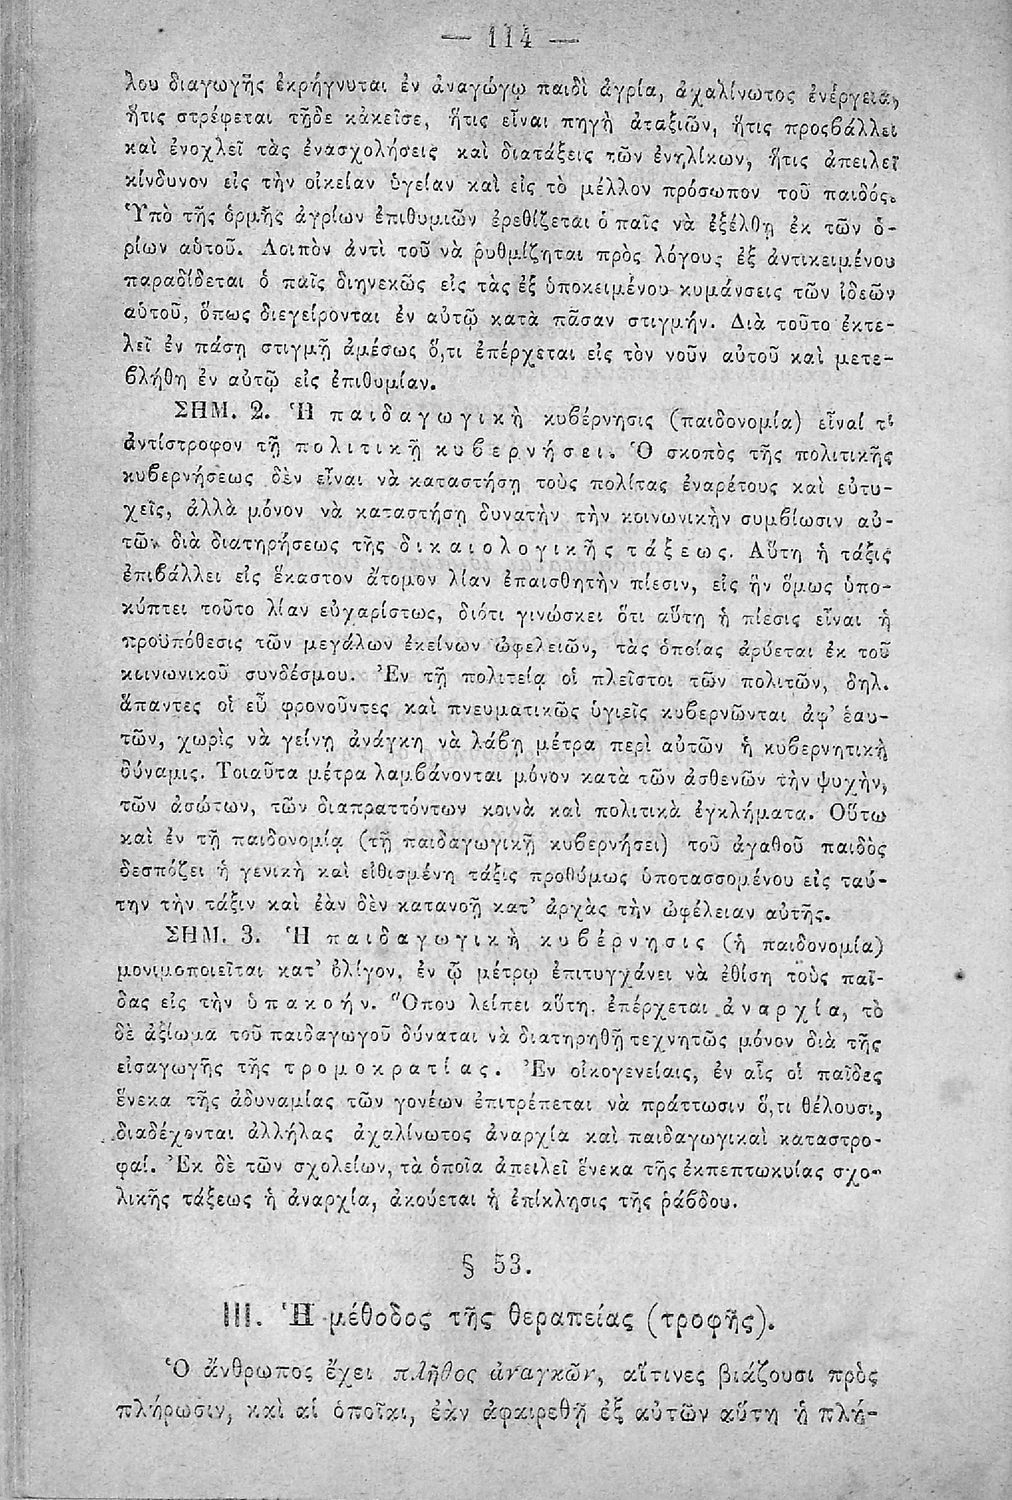 — 114 —
λου διαγωγῆς ἐκρήγνυται ἐν ἀναγώγῳ παιδὶ ἀγρία, ἀχαλίνωτος ἐνέργεια,
ἥτις στρέφεται τῇδε κἀκεῖσε, ἥτις εἶναι πηγὴ ἀταξιῶν, ἥτις προσβάλλει
καὶ ἐνοχλεῖ τὰς ἐνασχολήσεις καὶ διατάξεις τῶν ἐνηλίκων, ἥτις ἀπειλεῖ
κίνδυνον εἰς τὴν οἰκείαν ὑγείαν καὶ εἰς τὸ μέλλον πρόσωπον τοῦ παιδός.
Ὑπὸ τῆς ὁρμῆς ἀγρίων ἐπιθυμιῶν ἐρεθίζεται ὁ παῖς νὰ ἐξέλθῃ ἐκ τῶν ὁ-
ρίων αὐτοῦ. Λοιπὸν ἀντὶ τοῦ νὰ ῥυθμίζηται πρὸς λόγους ἐξ ἀντικειμένου
παραδίδεται ὁ παῖς διηνεκῶς εἰς τὰς ἐξ ὑποκειμένου κυμάνσεις τῶν ἰδεῶν
αὐτοῦ, ὅπως διεγείρονται ἐν αὐτῷ κατὰ πᾶσαν στιγμήν. Διὰ τοῦτο ἐκτε-
λεῖ ἐν πάσῃ στιγμῇ ἀμέσως ὅ,τι ἐπέρχεται εἰς τὸν νοῦν αὐτοῦ καὶ μετε-
βλήθη ἐν αὐτῷ εἰς ἐπιθυμίαν.
ΣΗΜ. 2. Ἡ παιδαγωγικὴ κυβέρνησις (παιδονομία) εἶναί τι
ἀντίστροφον τῇ πολιτικῇ κυβερνήσει. Ὁ σκοπὸς τῆς πολιτικῆς
κυβερνήσεως δὲν εἶναι νὰ καταστήσῃ τοὺς πολίτας ἐναρέτους καὶ εὐτυ-
χεῖς, ἀλλὰ μόνον νὰ καταστήσῃ δυνατὴν τὴν κοινωνικὴν συμβίωσιν αὐ-
τῶν διὰ διατηρήσεως τῆς δικαιολογικῆς τάξεως. Αὕτη ἡ τάξις
ἐπιβάλλει εἰς ἕκαστον ἄτομον λίαν ἐπαισθητὴν πίεσιν, εἰς ἣν ὅμως ὑπο-
κύπτει τοῦτο λίαν εὐχαρίστως, διότι γινώσκει ὅτι αὕτη ἡ πίεσις εἶναι ἡ
προϋπόθεσις τῶν μεγάλων ἐκείνων ὠφελειῶν, τὰς ὁποίας ἀρύεται ἐκ τοῦ
κοινωνικοῦ συνδέσμου. Ἐν τῇ πολιτείᾳ οἱ πλεῖστοι τῶν πολιτῶν, δηλ.
ἅπαντες οἱ εὖ φρονοῦντες καὶ πνευματικῶς ὑγιεῖς κυβερνῶνται ἀφ' ἑαυ-
τῶν, χωρὶς νὰ γείνῃ ἀνάγκη νὰ λάβῃ μέτρα περὶ αὐτῶν ἡ κυβερνητικὴ
δύναμις. Τοιαῦτα μέτρα λαμβάνονται μόνον κατὰ τῶν ἀσθενῶν τὴν ψυχήν,
τῶν ἀσώτων, τῶν διαπραττόντων κοινὰ καὶ πολιτικὰ ἐγκλήματα. Οὕτω
καὶ ἐν τῇ παιδονομίᾳ (τῇ παιδαγωγικῇ κυβερνήσει) τοῦ ἀγαθοῦ παιδὸς
δεσπόζει ἡ γενικὴ καὶ εἰθισμένη τάξις προθύμως ὑποτασσομένου εἰς ταύ-
την τὴν τάξιν καὶ ἐὰν δὲν κατανοῇ κατ' ἀρχὰς τὴν ὠφέλειαν αὐτῆς.
ΣΗΜ. 3. Ἡ παιδαγωγικὴ κυβέρνησις (ἡ παιδονομία)
μονιμοποιεῖται κατ' ὀλίγον, ἐν ᾧ μέτρῳ ἐπιτυγχάνει νὰ ἐθίσῃ τοὺς παῖ-
δας εἰς τὴν ὑπακοήν. Ὅπου λείπει αὕτη, ἐπέρχεται ἀναρχία, τὸ
δὲ ἀξίωμα τοῦ παιδαγωγοῦ δύναται νὰ διατηρηθῇ τεχνητῶς μόνον διὰ τῆς
εἰσαγωγῆς τῆς τρομοκρατίας. Ἐν οἰκογενείαις, ἐν αἷς οἱ παῖδες
ἕνεκα τῆς ἀδυναμίας τῶν γονέων ἐπιτρέπεται νὰ πράττωσιν ὅ,τι θέλουσι,
διαδέχονται ἀλλήλας ἀχαλίνωτος ἀναρχία καὶ παιδαγωγικαὶ καταστρο-
φαί. Ἐκ δὲ τῶν σχολείων, τὰ ὁποῖα ἀπειλεῖ ἕνεκα τῆς ἐκπεπτωκυίας σχο-
λικῆς τάξεως ἡ ἀναρχία, ἀκούεται ἡ ἐπίκλησις τῆς ῥάβδου.
§ 53.
III. Ἡ μέθοδος τῆς θεραπείας (τροφῆς).
Ὁ ἄνθρωπος ἔχει πλῆθος ἀναγκῶν, αἵτινες βιάζουσι πρὸς
πλήρωσιν, καὶ αἱ ὁποῖαι, ἐὰν ἀφαιρεθῇ ἐξ αὐτῶν αὕτη ἡ πλή-